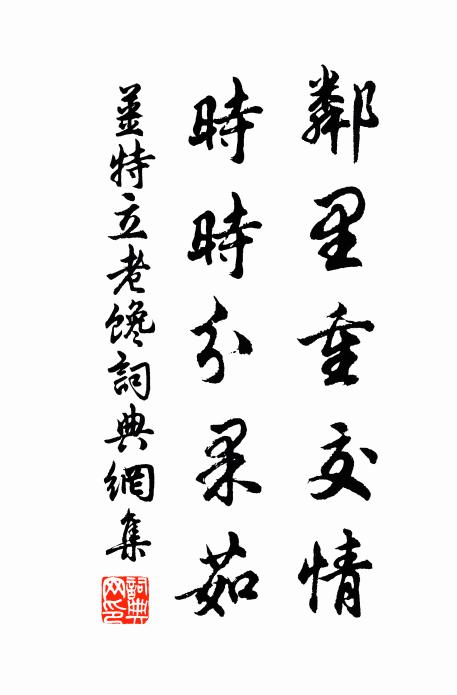 鄰里重交情
時時分果茹
薑特立老馋詞典網集
詞典网印